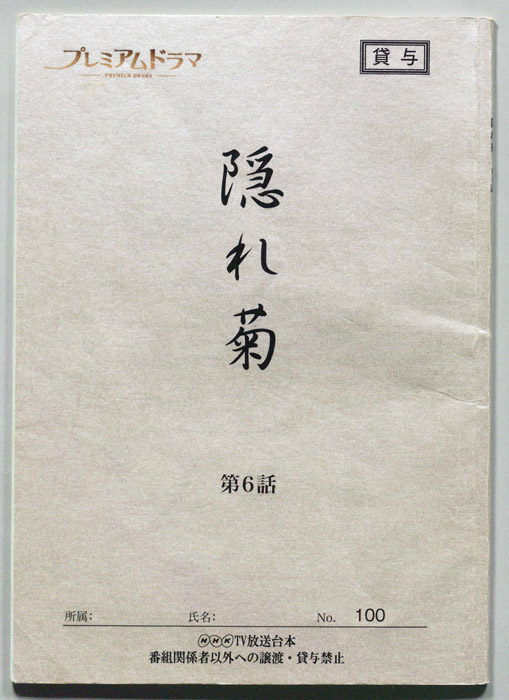 プレミアムドラマ
PREMIUM DRAMA
貸与
隠れ菊
第6話
所属: 氏名: No. 100
NHK TV放送台本
番組関係者以外への譲渡・貸与禁止